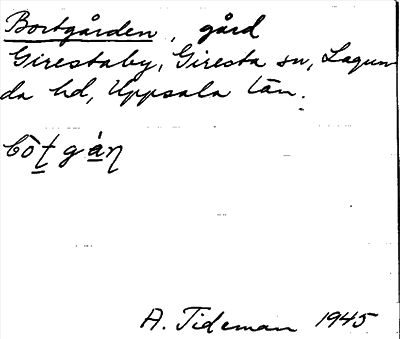 Bortgården, gård
Girestaby, Giresta sn, Lagun
da hd, Uppsala län.
bòt̲ gå̲ņ
A. Tideman 1945